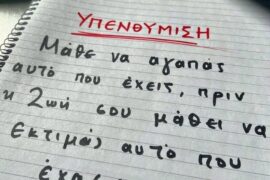 ΥΠΕΝΘΥΜΙΣΗ
Μάθε να αγαπάς
αυτό που έχεις, πριν
η Ζωή σου μάθει να
εκτιμάς αυτό που
έχασ